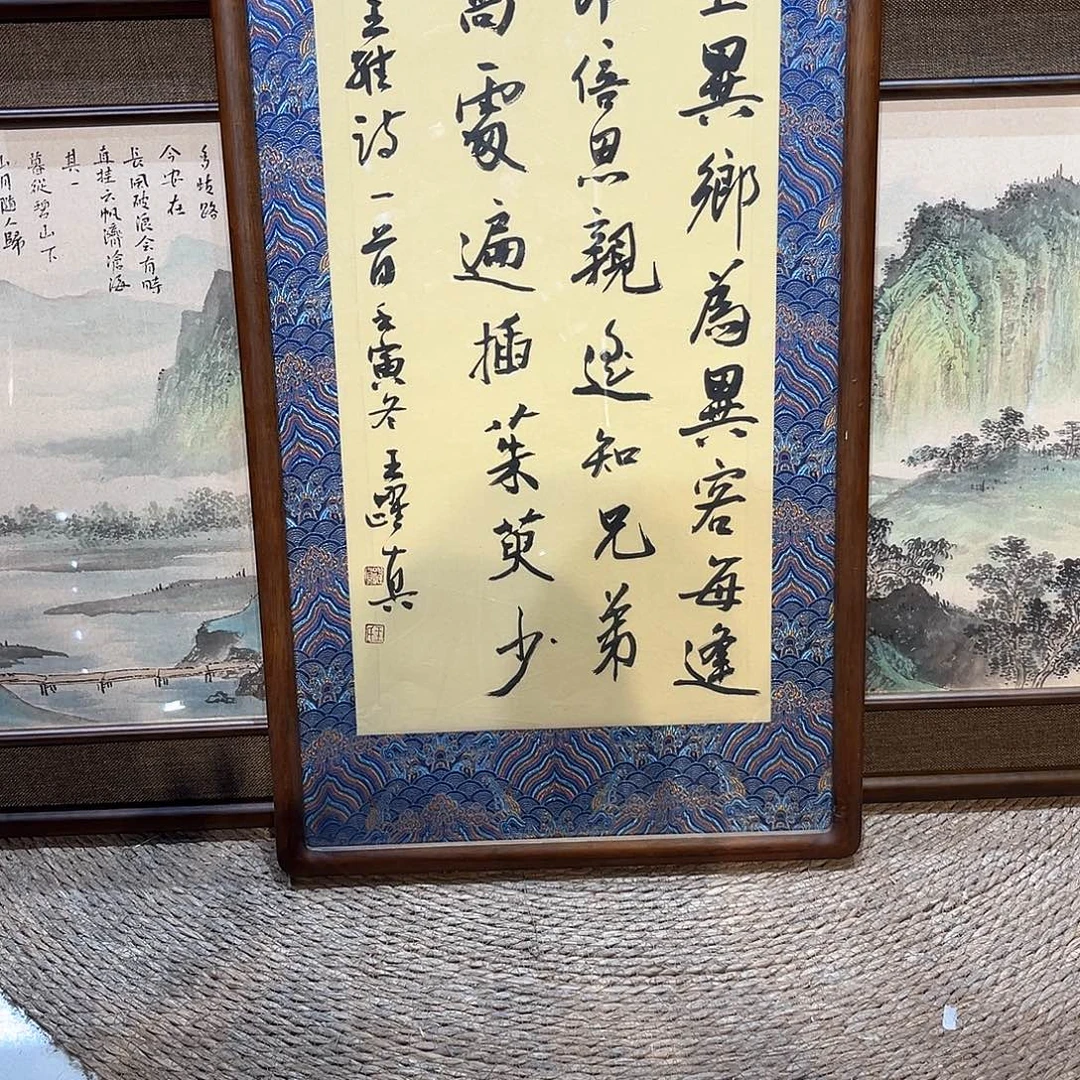 異鄉為異客每逢
倍思親遙知兄弟
高處遍插茱萸少
王維詩一首壬寅冬王躍真
多歧路
今安在
長風破浪会有時
直挂云帆濟滄海
其一
暮從碧山下
山月随人歸